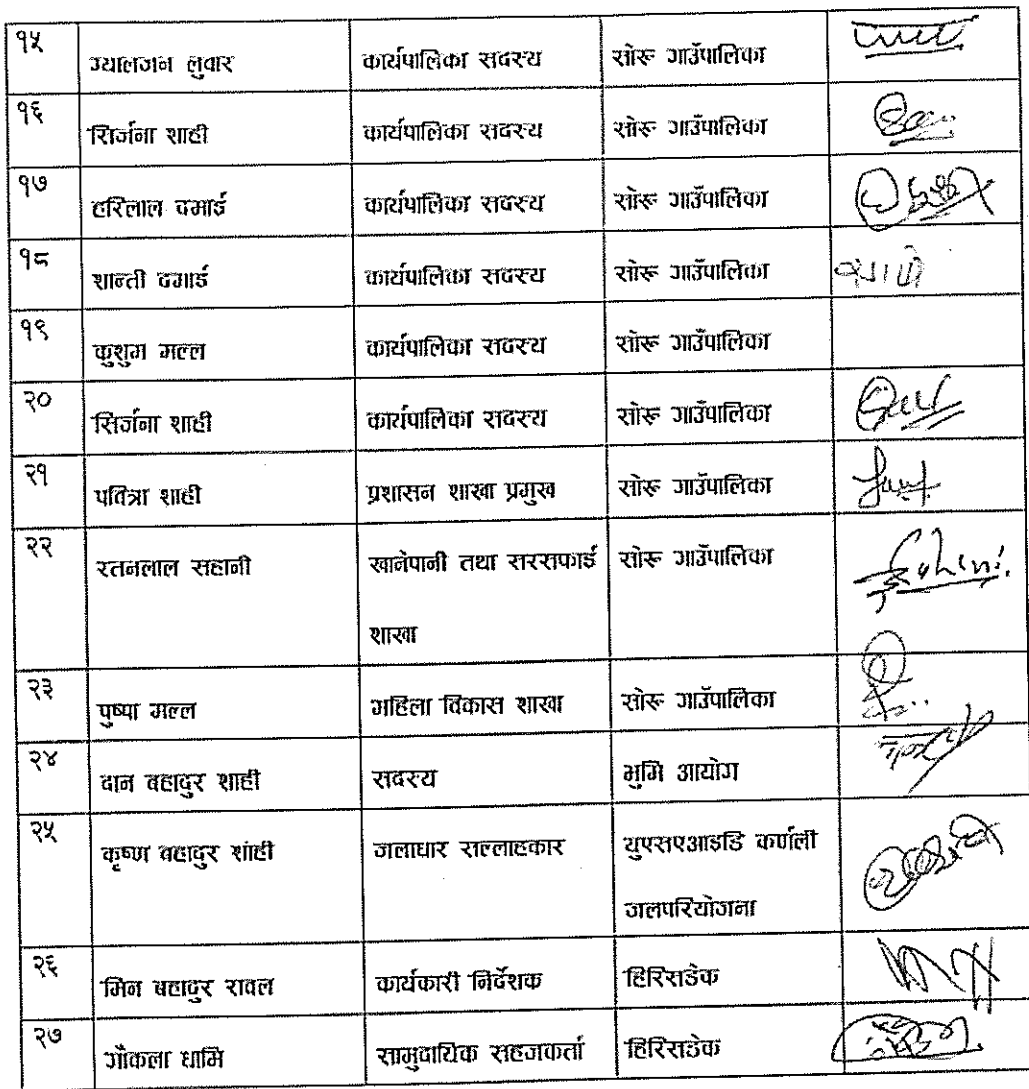 १५ ग्यालजन लुवार कार्यपालिका सदस्य सोरु गाउँपालिका
१६ सिर्जना शाही कार्यपालिका सदस्य सोरु गाउँपालिका
१७ हरिलाल दमाई कार्यपालिका सदस्य सोरु गाउँपालिका
१८ शान्ती दमाई कार्यपालिका सदस्य सोरु गाउँपालिका
१९ कुशुम मल्ल कार्यपालिका सदस्य सोरु गाउँपालिका
२० सिर्जना शाही कार्यपालिका सदस्य सोरु गाउँपालिका
२१ पवित्रा शाही प्रशासन शाखा प्रमुख सोरु गाउँपालिका
२२ रतनलाल सहानी खानेपानी तथा सरसफाई सोरु गाउँपालिका
शाखा
२३ पुष्पा मल्ल महिला विकास शाखा सोरु गाउँपालिका
२४ दान बहादुर शाही सदस्य भुमि आयोग
२५ कृष्ण बहादुर शाही जलाधार सल्लाहकार युएसएआइडि कर्णाली
जलपरियोजना
२६ मिन बहादुर रावल कार्यकारी निर्देशक हिरिसडेक
२७ गौंकला धामि सामुदायिक सहजकर्ता हिरिसडेक